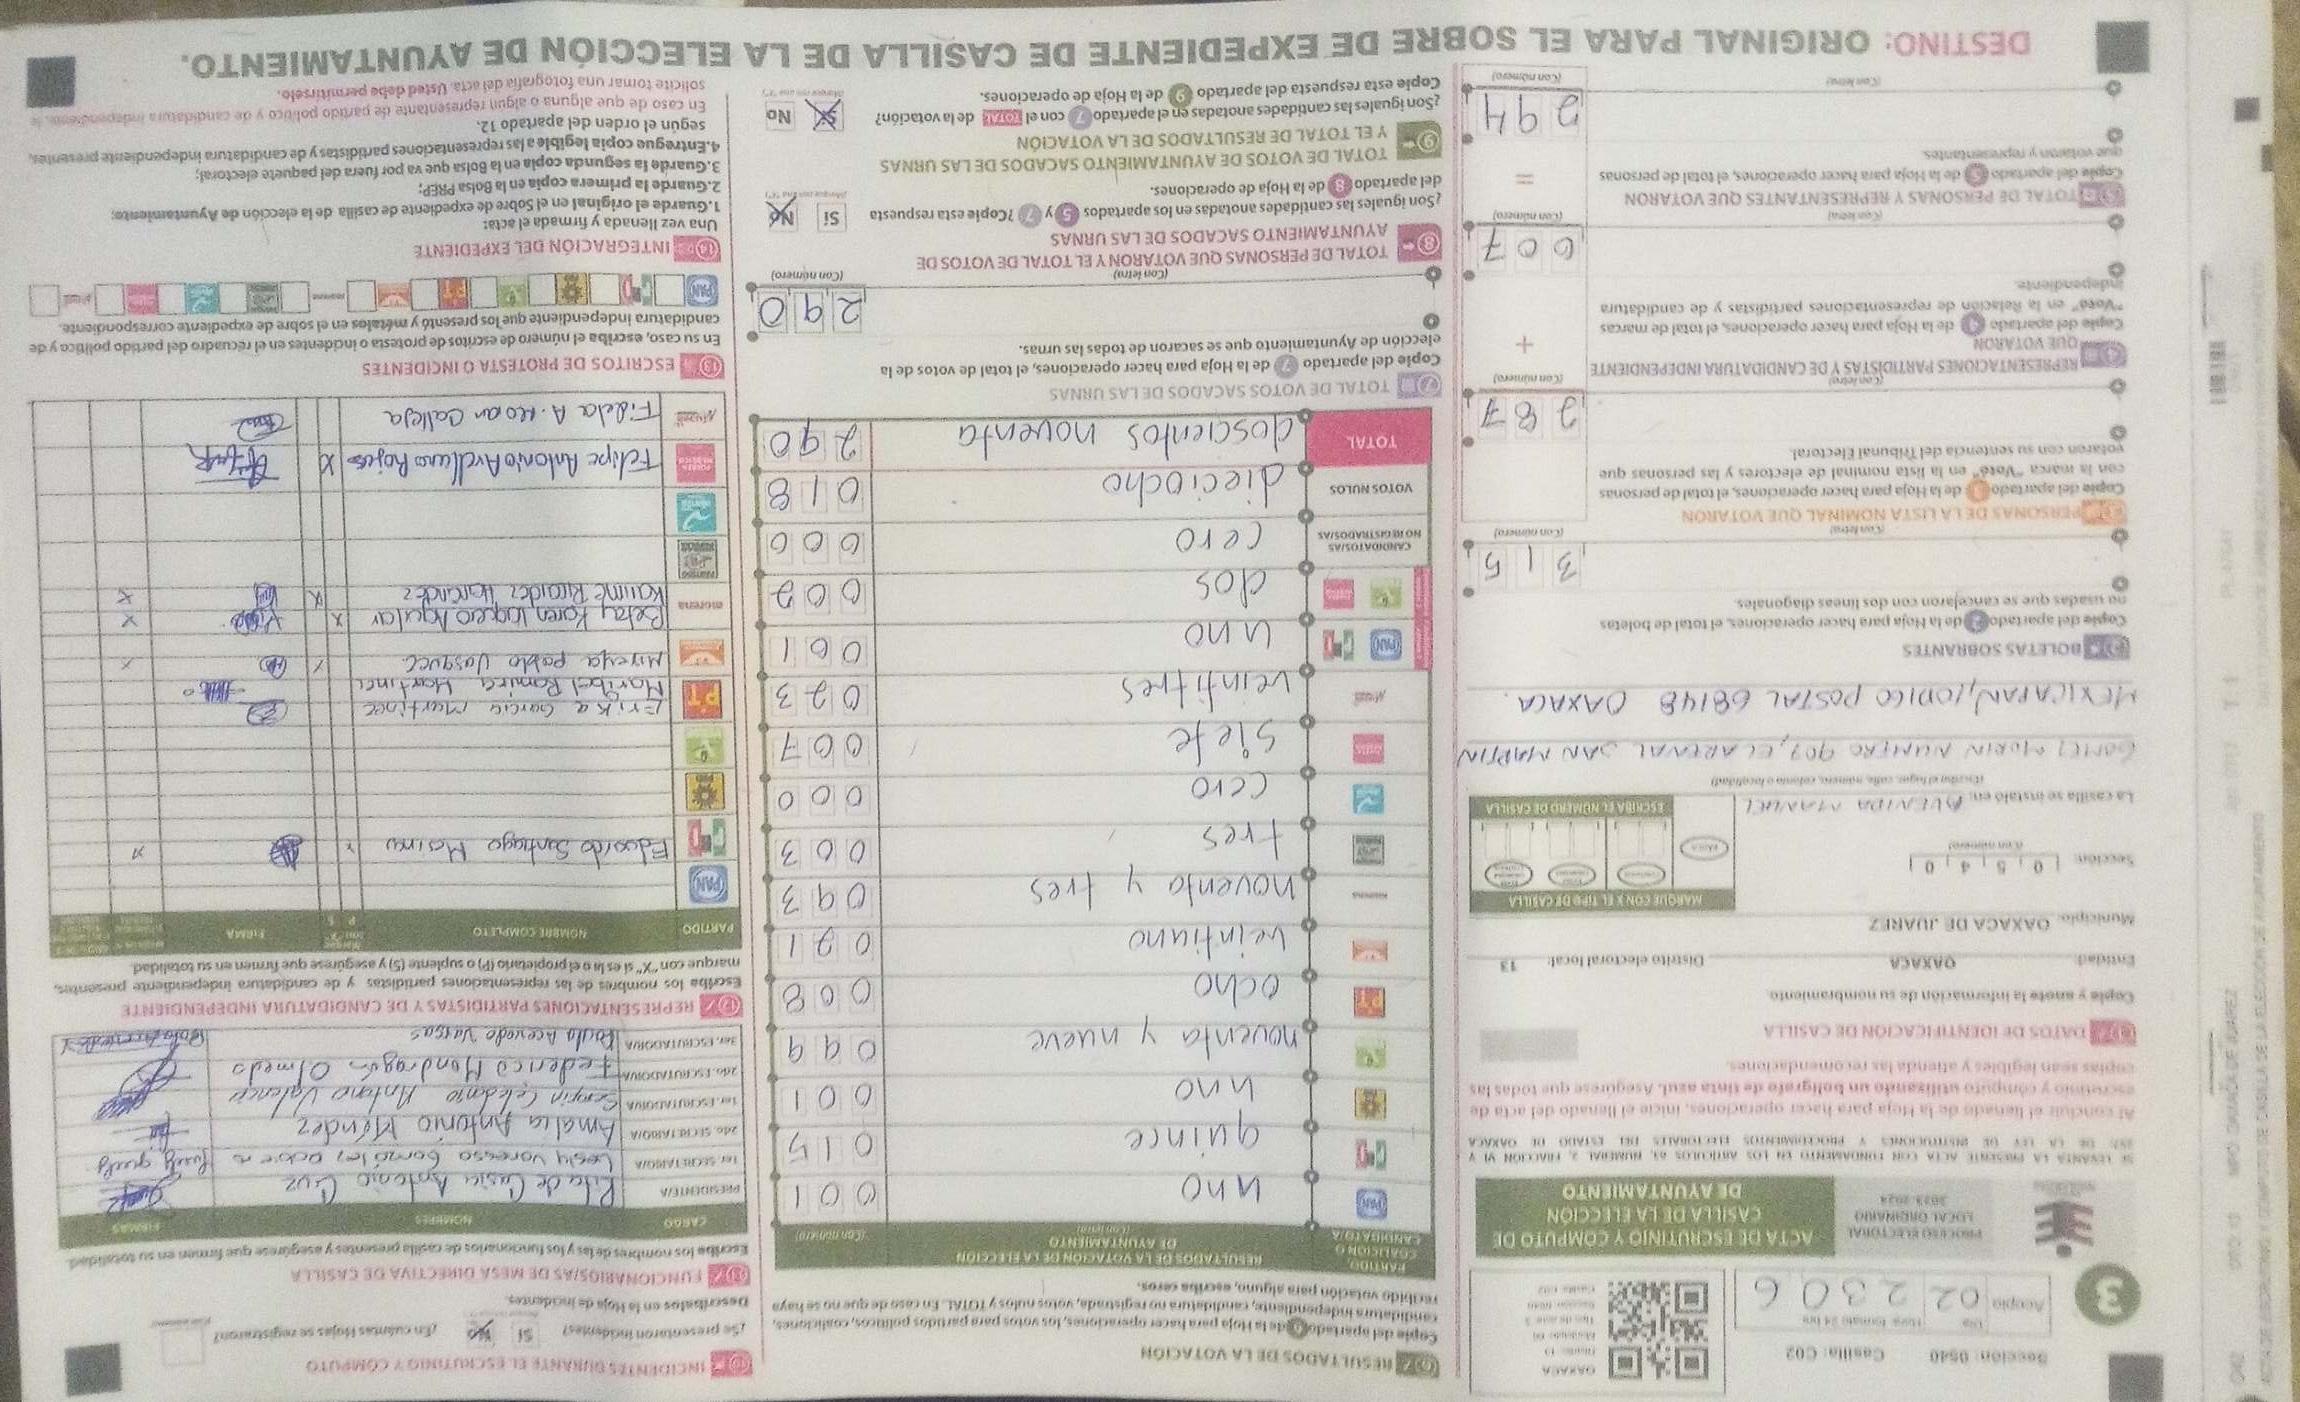 Sección: 0540 Casilla: C02
OAXACA
Acopio
02 23 06
3
PROCESO ELECTORAL
LOCAL ORDINARIO
2023-2024
ACTA DE ESCRUTINIO Y CÓMPUTO DE
CASILLA DE LA ELECCIÓN
DE AYUNTAMIENTO
SE LEVANTA LA PRESENTE ACTA CON FUNDAMENTO EN LOS ARTÍCULOS 63, NUMERAL 2, FRACCIÓN VI Y
DE LA LEY DE INSTITUCIONES Y PROCEDIMIENTOS ELECTORALES DEL ESTADO DE OAXACA
Al concluir el llenado de la Hoja para hacer operaciones, inicie el llenado del acta de
escrutinio y cómputo utilizando un bolígrafo de tinta azul. Asegúrese que todas las
copias sean legibles y atienda las recomendaciones.
1 DATOS DE IDENTIFICACIÓN DE CASILLA
Copie y anote la información de su nombramiento.
Entidad: OAXACA Distrito electoral local: 13
Municipio: OAXACA DE JUAREZ
Sección: 0 5 4 0
(Con número)
MARQUE CON X EL TIPO DE CASILLA
ESCRIBA EL NÚMERO DE CASILLA
La casilla se instaló en: AVENIDA MANUEL
(Escriba el lugar, calle, número, colonia o localidad)
GOMEZ MORIN NUMERO 907, EL ARENAL SAN MARTIN
MEXICAPAN, CODIGO POSTAL 68148 OAXACA.
2 BOLETAS SOBRANTES
Copie del apartado 2 de la Hoja para hacer operaciones, el total de boletas
no usadas que se cancelaron con dos líneas diagonales.
3 1 5
(Con letra) (Con número)
3 PERSONAS DE LA LISTA NOMINAL QUE VOTARON
Copie del apartado 3 de la Hoja para hacer operaciones, el total de personas
con la marca "Votó" en la lista nominal de electores y las personas que
votaron con su sentencia del Tribunal Electoral.
2 8 7
(Con letra) (Con número)
4 REPRESENTACIONES PARTIDISTAS Y DE CANDIDATURA INDEPENDIENTE
QUE VOTARON
Copie del apartado 4 de la Hoja para hacer operaciones, el total de marcas
"Votó" en la Relación de representaciones partidistas y de candidatura
independiente.
+
0 0 7
(Con letra) (Con número)
5 TOTAL DE PERSONAS Y REPRESENTANTES QUE VOTARON
Copie del apartado 5 de la Hoja para hacer operaciones, el total de personas
que votaron y representantes.
=
2 9 4
(Con letra) (Con número)
6 RESULTADOS DE LA VOTACIÓN
Copie del apartado 6 de la Hoja para hacer operaciones, los votos para partidos políticos, coaliciones,
candidatura independiente, candidatura no registrada, votos nulos y TOTAL. En caso de que no se haya
recibido votación para alguno, escriba ceros.
PARTIDO, COALICIÓN O CANDIDATO/A
RESULTADOS DE LA VOTACIÓN DE LA ELECCIÓN
DE AYUNTAMIENTO
(Con letra) (Con número)
PAN uno 0 0 1
PRI quince 0 1 5
PRD uno 0 0 1
noventa y nueve 0 9 9
PT ocho 0 0 8
veintiuno 0 2 1
morena noventa y tres 0 9 3
tres 0 0 3
cero 0 0 0
siete 0 0 7
veintitres 0 2 3
PAN PRI uno 0 0 1
dos 0 0 2
CANDIDATOS/AS NO REGISTRADOS/AS cero 0 0 0
VOTOS NULOS dieciocho 0 1 8
TOTAL doscientos noventa 2 9 0
7 TOTAL DE VOTOS SACADOS DE LAS URNAS
Copie del apartado 7 de la Hoja para hacer operaciones, el total de votos de la
elección de Ayuntamiento que se sacaron de todas las urnas.
2 9 0
(Con letra) (Con número)
8 TOTAL DE PERSONAS QUE VOTARON Y EL TOTAL DE VOTOS DE
AYUNTAMIENTO SACADOS DE LAS URNAS
¿Son iguales las cantidades anotadas en los apartados 5 y 7? Copie esta respuesta
del apartado 8 de la Hoja de operaciones.
Sí No
9 TOTAL DE VOTOS DE AYUNTAMIENTO SACADOS DE LAS URNAS
Y EL TOTAL DE RESULTADOS DE LA VOTACIÓN
¿Son iguales las cantidades anotadas en el apartado 7 con el TOTAL de la votación?
Copie esta respuesta del apartado 9 de la Hoja de operaciones.
Sí No
10 INCIDENTES DURANTE EL ESCRUTINIO Y CÓMPUTO
¿Se presentaron incidentes? Sí No ¿En cuántas Hojas se registraron?
Descríbalos en la Hoja de Incidentes.
11 FUNCIONARIOS/AS DE MESA DIRECTIVA DE CASILLA
Escriba los nombres de las y los funcionarios de casilla presentes y asegúrese que firmen en su totalidad.
CARGO NOMBRES FIRMAS
PRESIDENTE/A Rita de Casia Antonio Cruz
1er. SECRETARIO/A Lesly Vanessa González
2do. SECRETARIO/A Amalia Antonio Méndez
1er. ESCRUTADOR/A Serafin Celedonio Antonio Valencia
2do. ESCRUTADOR/A Federico Mondragón Olmedo
3er. ESCRUTADOR/A Paula Acevedo Vargas
12 REPRESENTACIONES PARTIDISTAS Y DE CANDIDATURA INDEPENDIENTE
Escriba los nombres de las representaciones partidistas y de candidatura independiente presentes,
marque con "X" si es la o el propietario (P) o suplente (S) y asegúrese que firmen en su totalidad.
PARTIDO NOMBRE COMPLETO FIRMA
PAN
PRI Eduardo Santiago
PRD
PT Erika Garcia Martinez
Maribel Ramirez Martinez
Mireya Pablo Vasquez
morena Betsy Karen Vaquero Aguilar
Felipe Antonio Avellano Rojas
Fidela A. Moran Calleja
13 ESCRITOS DE PROTESTA O INCIDENTES
En su caso, escriba el número de escritos de protesta o incidentes en el recuadro del partido político y de
candidatura independiente que los presentó y métalos en el sobre de expediente correspondiente.
14 INTEGRACIÓN DEL EXPEDIENTE
Una vez llenada y firmada el acta:
1.Guarde el original en el Sobre de expediente de casilla de la elección de Ayuntamiento;
2.Guarde la primera copia en la Bolsa PREP;
3.Guarde la segunda copia en la Bolsa que va por fuera del paquete electoral;
4.Entregue copia legible a las representaciones partidistas y de candidatura independiente presentes,
según el orden del apartado 12.
En caso de que alguna o algún representante de partido político y de candidatura independiente, le
solicite tomar una fotografía del acta. Usted debe permitírselo.
DESTINO: ORIGINAL PARA EL SOBRE DE EXPEDIENTE DE CASILLA DE LA ELECCIÓN DE AYUNTAMIENTO.